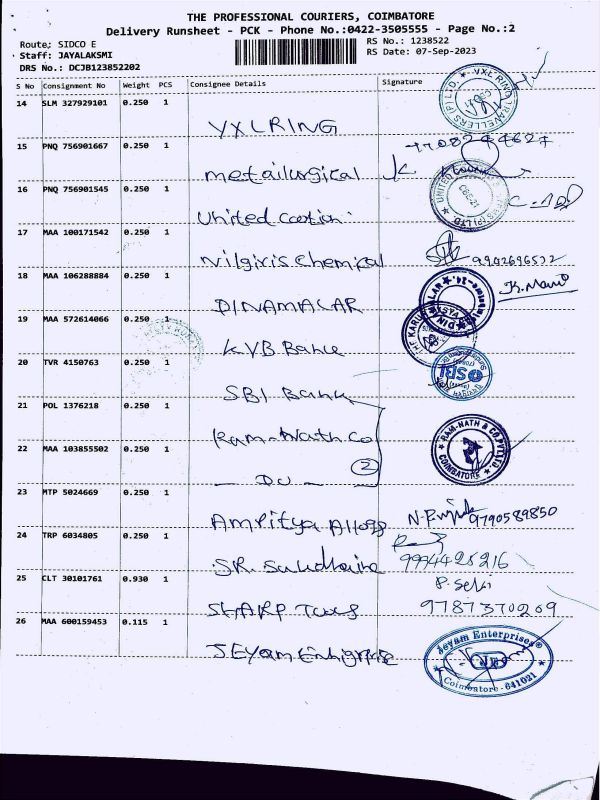 THE PROFESSIONAL COURIERS, COIMBATORE
Delivery Runsheet - PCK - Phone No.:0422-3505555 - Page No.:2
Route: SIDCO E
RS No.: 1238522
Staff: JAYALAKSMI
RS Date: 07-Sep-2023
DRS No.: DCJB123852202
S No Consignment No Weight PCS Consignee Details Signature
14 SLM 327929101 0.250 1
VXLRING
15 PNQ 756901667 0.250 1
metallurgical
16 PNQ 756901545 0.250 1
United
17 MAA 100171542 0.250 1
Nilgiris Chemical 9902696532
18 MAA 106288884 0.250 1
DINAMALAR K.Mani
19 MAA 572614066 0.250 1
KVB Bank
20 TVR 4150763 0.250 1
SBI Bank
SBI
21 POL 1376218 0.250 1
Ram-Nath Co
RAM-NATH & CO.PVT.LTD.
COIMBATORE
22 MAA 103855502 0.250 1
2
- DO -
23 MTP 5024669 0.250 1
Amritya Alloys 9790589850
24 TRP 6034805 0.250 1
SR. 9994425216
25 CLT 30101761 0.930 1
P. Selvi
SHARP Tools 9787370209
26 MAA 600159453 0.115 1
JEYam Enterprise
Jeyam Enterprises
JE
Coimbatore - 641021